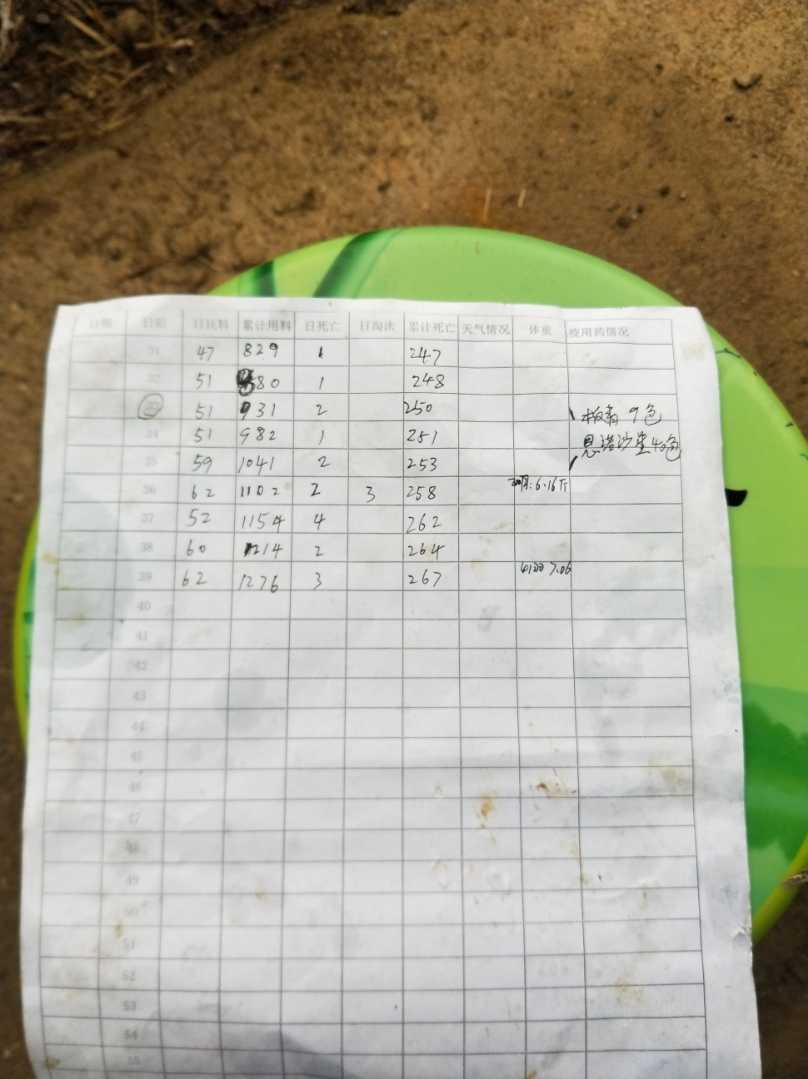 日期 日龄 日耗料 累计用料 日死亡 日淘汰 累计死亡 天气情况 体重 疫用药情况
31 47 829 1 247
32 51 880 1 248
33 51 931 2 250 9包
34 51 982 1 251 恩诺沙星40包
35 59 1041 2 253
36 62 1102 2 3 258 6.16斤
37 52 1154 4 262
38 60 1214 2 264
39 62 1276 3 267 7.06
40
41
42
43
44
45
46
47
48
49
50
51
52
53
54
55